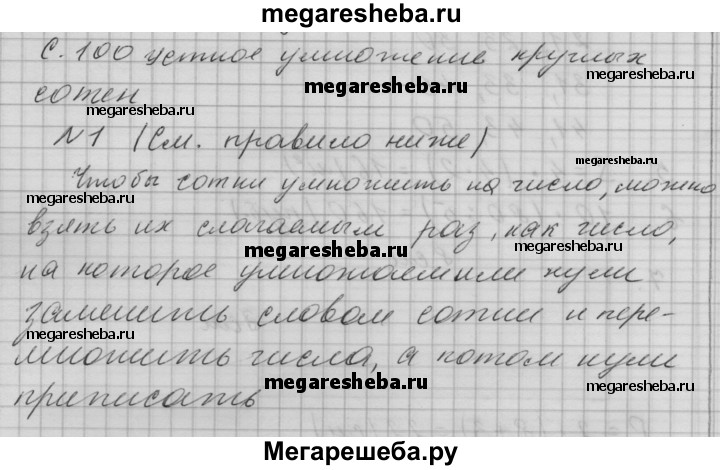 megaresheba.ru
С. 100 устное умножение круглых
megaresheba.ru
megaresheba.ru
сотен
megaresheba.ru
N1 (См. правило ниже)
megaresheba.ru
Чтобы сотни умножить на число, можно
megaresheba.ru
взять их слагаемым раз, как число,
megaresheba.ru
megaresheba.ru
на которое умножаем или нули
заменить словом сотни и пере-
megaresheba.ru
megaresheba.ru
множить числа, а потом нули
megaresheba.ru
megaresheba.ru
приписать
Мегарешеба.ру